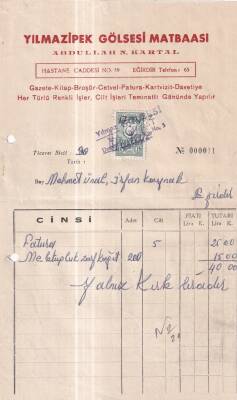 YILMAZİPEK GÖLSESİ MATBAASI
ABDULLAH N. KARTAL
HASTANE CADDESİ NO. 59 EĞİRDİR Telefon: 65
Gazete-Kitap-Broşür-Cetvel-Fatura-Kartvizit-Davetiye
Her Türlü Renkli İşler, Cilt İşleri Teminatlı Gününde Yapılır
Ticaret Sicil : 90
Tarih :
№ 000011
Bay Mehmet Ünal, İrfan Kaynak
Eğirdir
CİNSİ Adet Cilt FİATI Lira K. TUTARI Lira K.
Fatura 5 25 00
Mektupluk zarf kağıt 200 15 00
40 00
Yalnız Kırk liradır